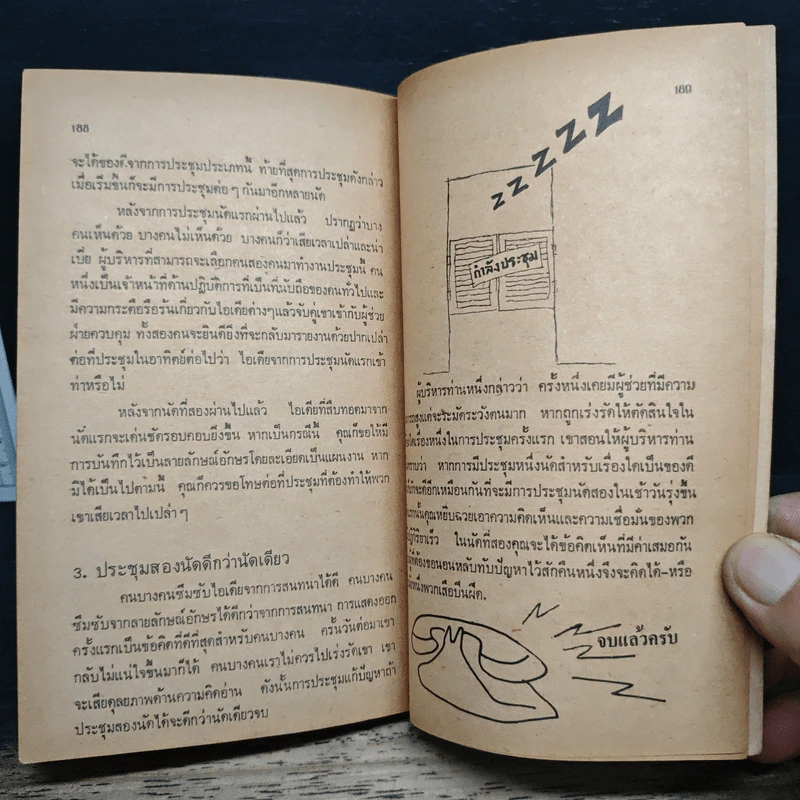 188
จะได้ของดีจากการประชุมประเภทนี้ ท้ายที่สุดการประชุมดังกล่าว
เมื่อเริ่มขึ้นก็จะมีการประชุมต่อๆ กันมาอีกหลายนัด
หลังจากการประชุมนัดแรกผ่านไปแล้ว ปรากฏว่าบาง
คนเห็นด้วย บางคนไม่เห็นด้วย บางคนก็ว่าเสียเวลาเปล่าและน่า
เบื่อ ผู้บริหารที่สามารถจะเลือกคนสองคนมาทำงานประชุมนี้ คน
หนึ่งเป็นเจ้าหน้าที่ด้านปฏิบัติการที่เป็นที่นับถือของคนทั่วไปและ
มีความกระตือรือร้นเกี่ยวกับไอเดียต่างๆแล้วจับคู่เขาเข้ากับผู้ช่วย
ฝ่ายควบคุม ทั้งสองคนจะยินดียิ่งที่จะกลับมารายงานด้วยปากเปล่า
ต่อที่ประชุมในอาทิตย์ต่อไปว่า ไอเดียจากการประชุมนัดแรกเข้า
ท่าหรือไม่
หลังจากนัดที่สองผ่านไปแล้ว ไอเดียที่สืบทอดมาจาก
นัดแรกจะเด่นชัดรอบคอบยิ่งขึ้น หากเป็นกรณีนี้ คุณก็ขอให้มี
การบันทึกไว้เป็นลายลักษณ์อักษรโดยละเอียดเป็นแผนงาน หาก
มิได้เป็นไปตามนี้ คุณก็ควรขอโทษต่อที่ประชุมที่ต้องทำให้พวก
เขาเสียเวลาไปเปล่าๆ
3. ประชุมสองนัดดีกว่านัดเดียว
คนบางคนซึมซับไอเดียจากการสนทนาได้ดี คนบางคน
ซึมซับจากลายลักษณ์อักษรได้ดีกว่าจากการสนทนา การแสดงออก
ครั้งแรกเป็นข้อคิดที่ดีที่สุดสำหรับคนบางคน ครั้นวันต่อมาเขา
กลับไม่แน่ใจขึ้นมาก็ได้ คนบางคนเราไม่ควรไปเร่งรัดเขา เขา
จะเสียดุลยภาพด้านความคิดอ่าน ดังนั้นการประชุมแก้ปัญหาถ้า
ประชุมสองนัดได้จะดีกว่านัดเดียวจบ
189
z z z z z
กำลังประชุม
ผู้บริหารท่านหนึ่งกล่าวว่า ครั้งหนึ่งเคยมีผู้ช่วยที่มีความ
แต่จะระมัดระวังตนมาก หากถูกเร่งรัดให้ตัดสินใจใน
เรื่องหนึ่งในการประชุมครั้งแรก เขาสอนให้ผู้บริหารท่าน
ว่า หากการมีประชุมหนึ่งนัดสำหรับเรื่องใดเป็นของดี
จะดีอีกเหมือนกันที่จะมีการประชุมนัดสองในเช้าวันรุ่งขึ้น
คุณหยิบฉวยเอาความคิดเห็นและความเชื่อมั่นของพวก
ในนัดที่สองคุณจะได้ข้อคิดเห็นที่มีค่าเสมอกัน
ต้องขอนอนหลับทับปัญหาไว้สักคืนหนึ่งจึงจะคิดได้–หรือ
พวกเสือปืนฝืด.
จบแล้วครับ